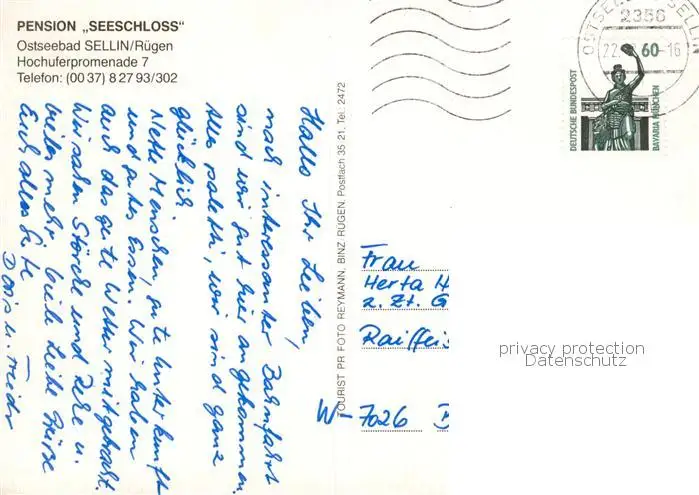 PENSION „SEESCHLOSS"
Ostseebad SELLIN/Rügen
Hochuferpromenade 7
Telefon: (00 37) 8 27 93/302
Hallo Ihr Lieben,
nach interessanter Bahnfahrt
sind wir gut hier angekommen.
Alles paletti, wir sind ganz
glücklich.
Nette Menschen, gute Unterkunft
und gutes Essen. Wir haben
auch das gute Wetter mitgebracht.
Wir sahen Störche und Rehe u.
vieles mehr. Viele liebe Grüsse
Euch alles Gute
Doris u. Frieder
TOURIST PR FOTO REYMANN, BINZ RÜGEN, Postfach 35 21, Tel.: 2472
OSTSEEBAD SELLIN
2356
22. 60-16
DEUTSCHE BUNDESPOST
BAVARIA MÜNCHEN
Frau
Herta H
z. Zt. G
Raiffeis
W-7026 B
privacy protection
Datenschutz